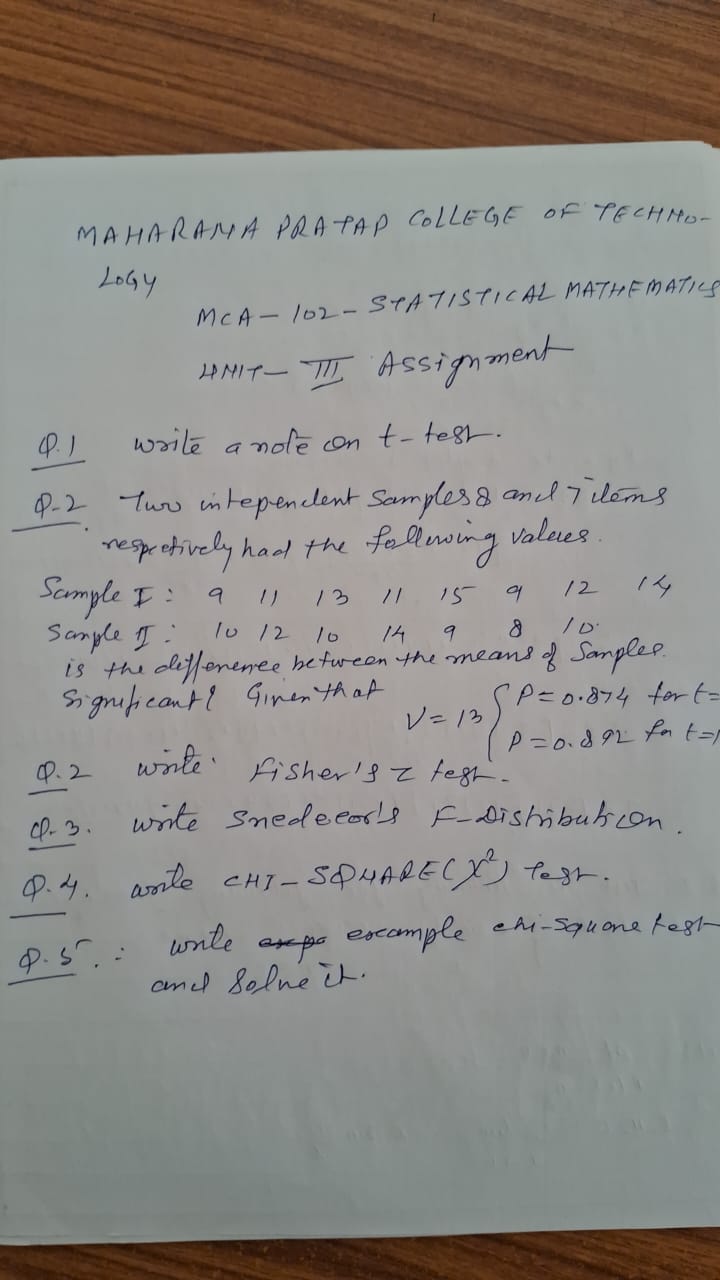 MAHARANA PRATAP COLLEGE OF TECHNO-
LOGY
MCA-102-STATISTICAL MATHEMATICS
UNIT-III Assignment
Q.1 write a note on t-test.
Q-2 Two intependent Samples 8 and 7 items
respectively had the following values.
Sample I: 9 11 13 11 15 9 12 14
Sample II: 10 12 10 14 9 8 10.
is the difference between the means of Samples
significant? Given that
V=13 { P=0.874 for t=
P=0.892 for t=1
Q.2 write Fisher's Z test.
Q.3. write Snedecor's F-Distribution.
Q.4. write CHI-SQUARE(χ²) test.
Q.5.: write example chi-square test
and Solve it.